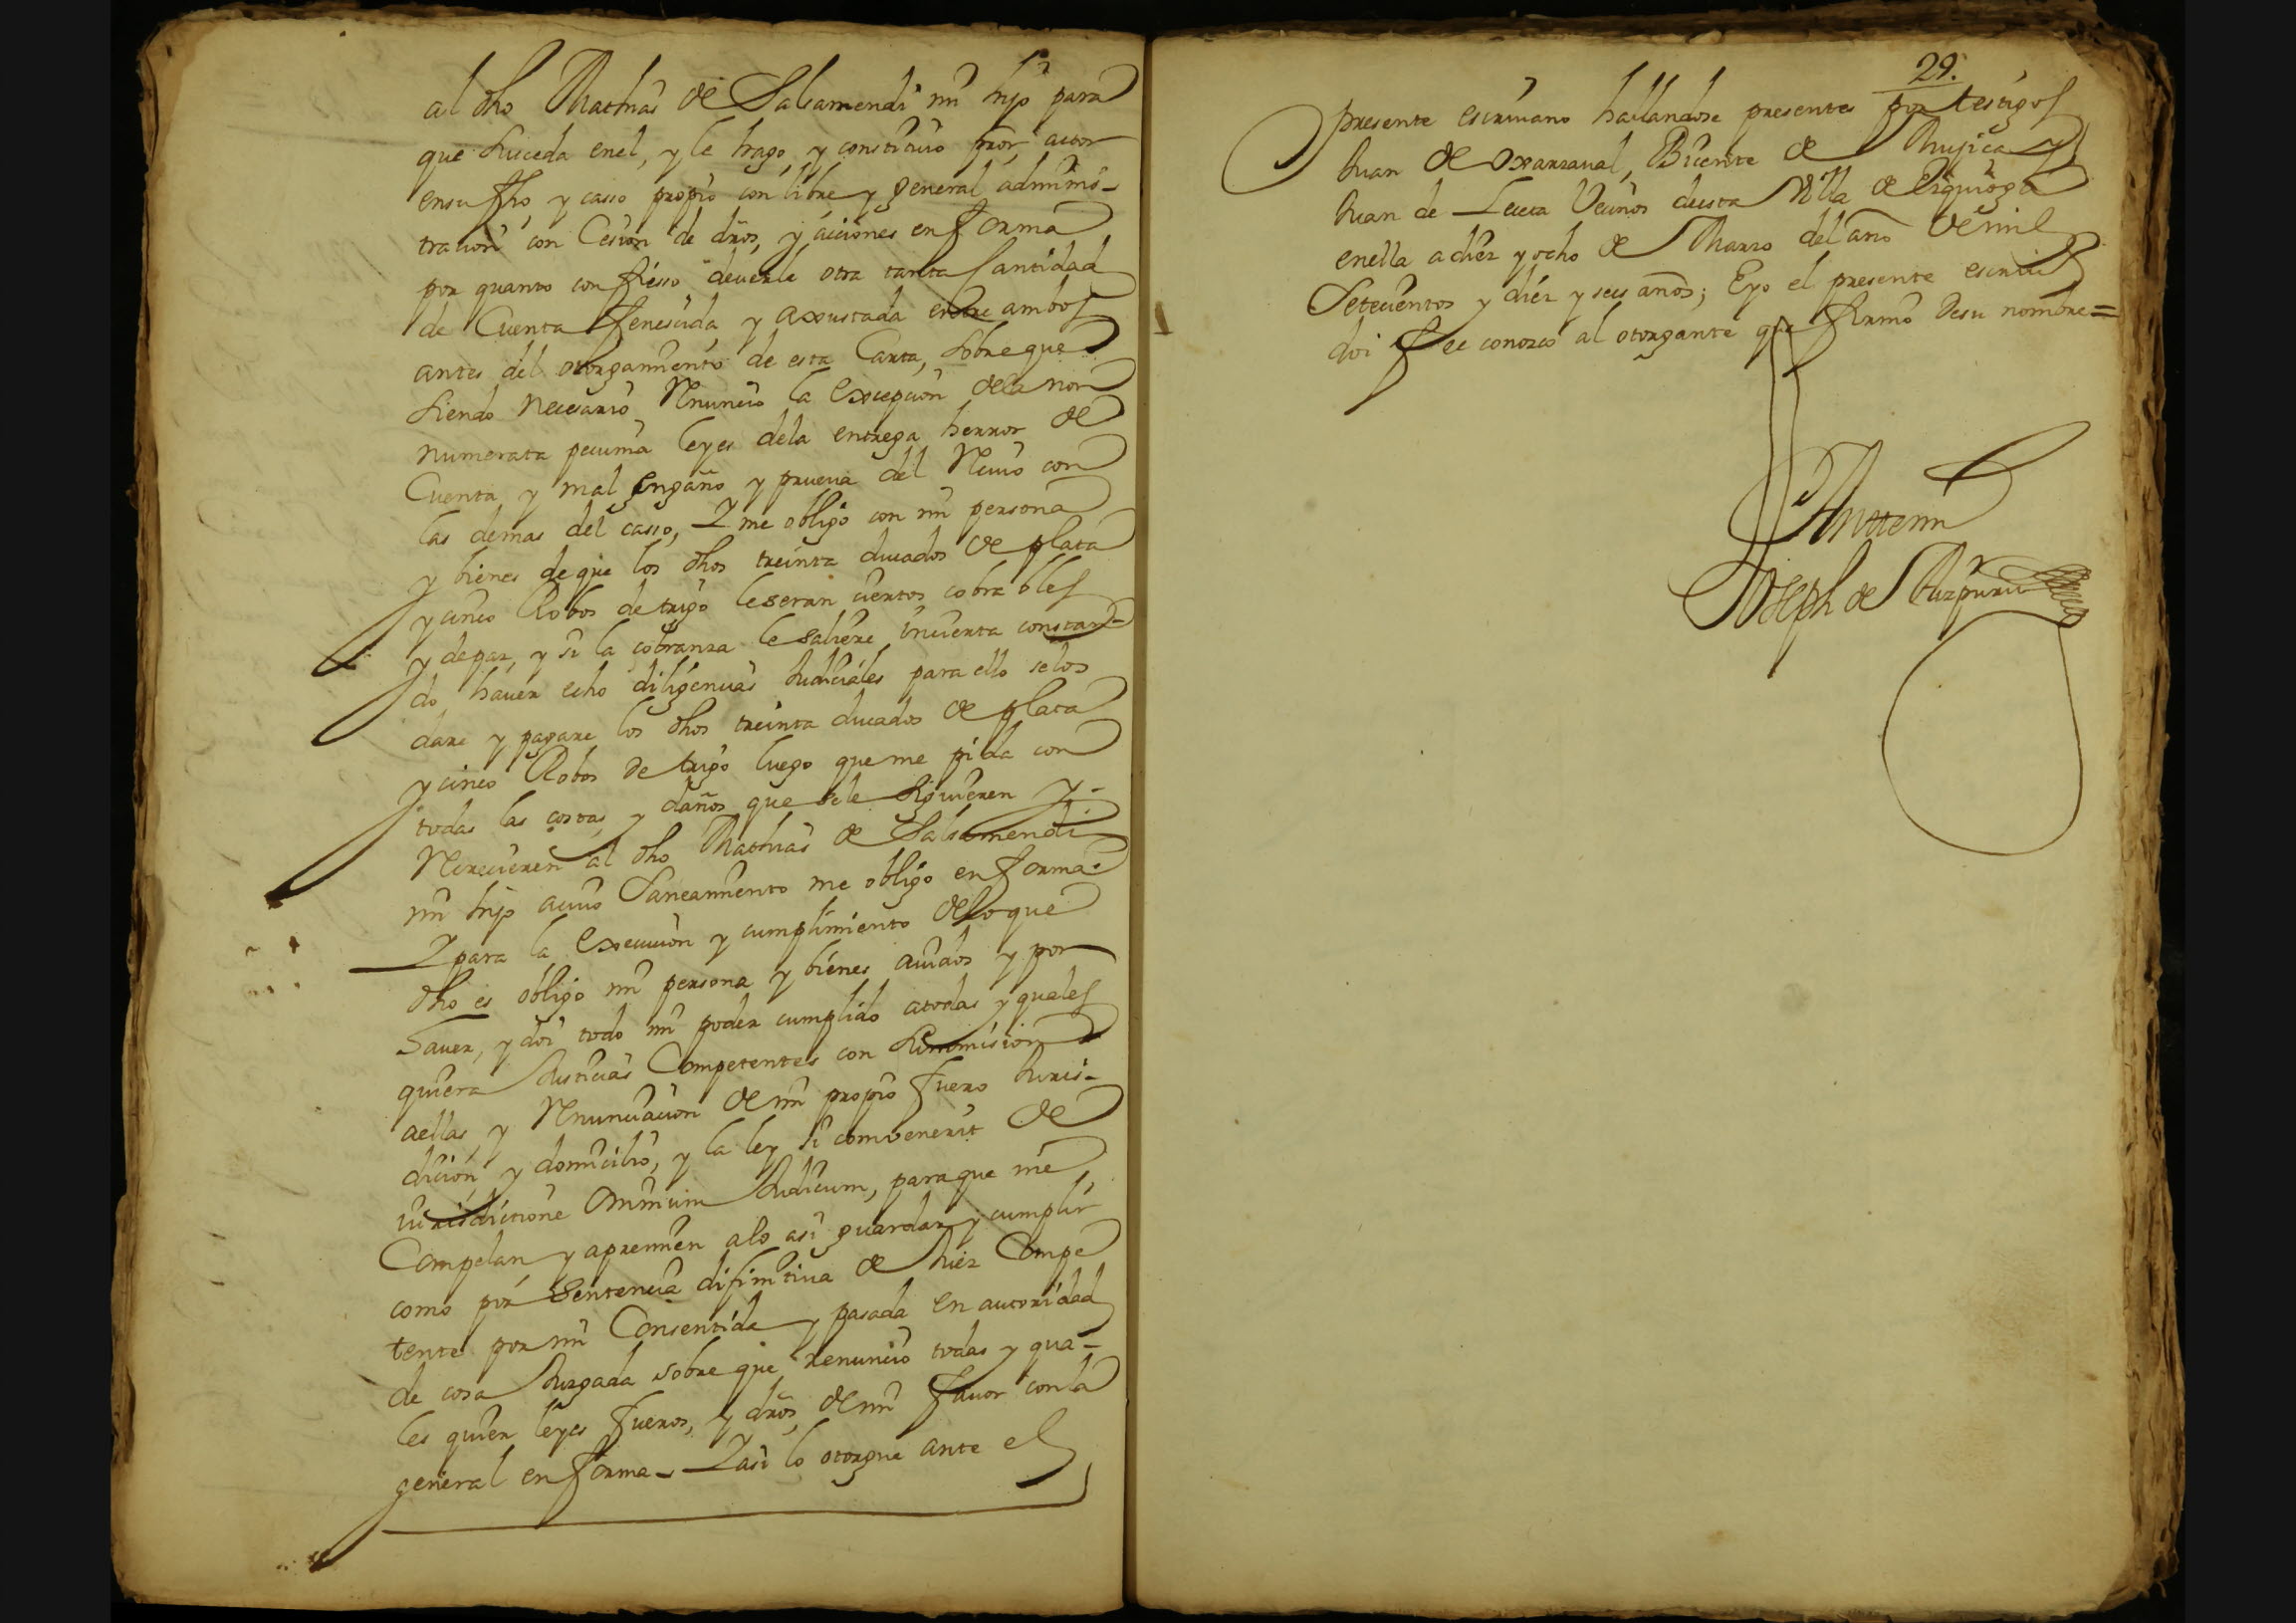 al dho Mathias de Salsamendi mi hijo para
que suceda enel, y le hago, y constituio pror, actor
ensu fho, y casso propio con libre y general adminis-
tracion con Cesion de dros, y acciones en forma
por quanto confiesso deuerle otra tanta cantidad
de Cuenta fenescida y axustada entre ambos
antes del otorgamiento de esta Carta, sobre que
siendo necesario Renuncio la Excepcion dela non
numerata pecunia leyes dela entrega herror de
Cuenta y mal engaño y prueua del Reciuo con
las demas del casso, Y me obligo con mi persona
y bienes de que los dhos treinta ducados de plata
y cinco Robos de trigo le seran ciertos cobrables
y de paz, y si la cobranza le saliere incierta constan-
do, hauer echo diligencias Judiciales para ello se los
dare y pagare los dhos treinta ducados de plata
y cinco Robos de trigo luego que me pida con
todas las costas, y daños que se le siguieren y-
Recrecieren al dho Mathias de Salsamendi
mi hijo acuio Saneamiento me obligo en forma.
Y para la Execucion y cumplimiento de lo que
dho es obligo mi persona y bienes auidos y por
hauer, y doi todo mi poder cumplido atodas y quales
quiera Justicias Competentes con Summision
aellas, y Renunciacion de mi propio fuero Juris-
dicion y domicilio, y la ley si convenerit de
jurisdictione Omnium Judicum, para que me
Compelan y apremien alo asi guardar y cumplir
como por Sentencia difinitiua de Juez Compe
tente por mi Consentida y pasada en autoridad
de cosa Juzgada sobre que renuncio todas y qua-
les quier leyes fueros, y dros, de mi fauor con la
general en forma- Y asi lo otorgue ante el
29.
presente escriuano hallandose presentes por testigos
Juan de Oxanzaual, Bicente de Mujica y
Juan de Leceta Vecinos desta Villa de Ezquioga
enella a diez y ocho de Marzo del año de mil
Setecientos y diez y seis años; E yo el presente escriuo
doi fee conozco al otorgante que firmo de su nombre=
Antte mi
Joseph de Aizpuru